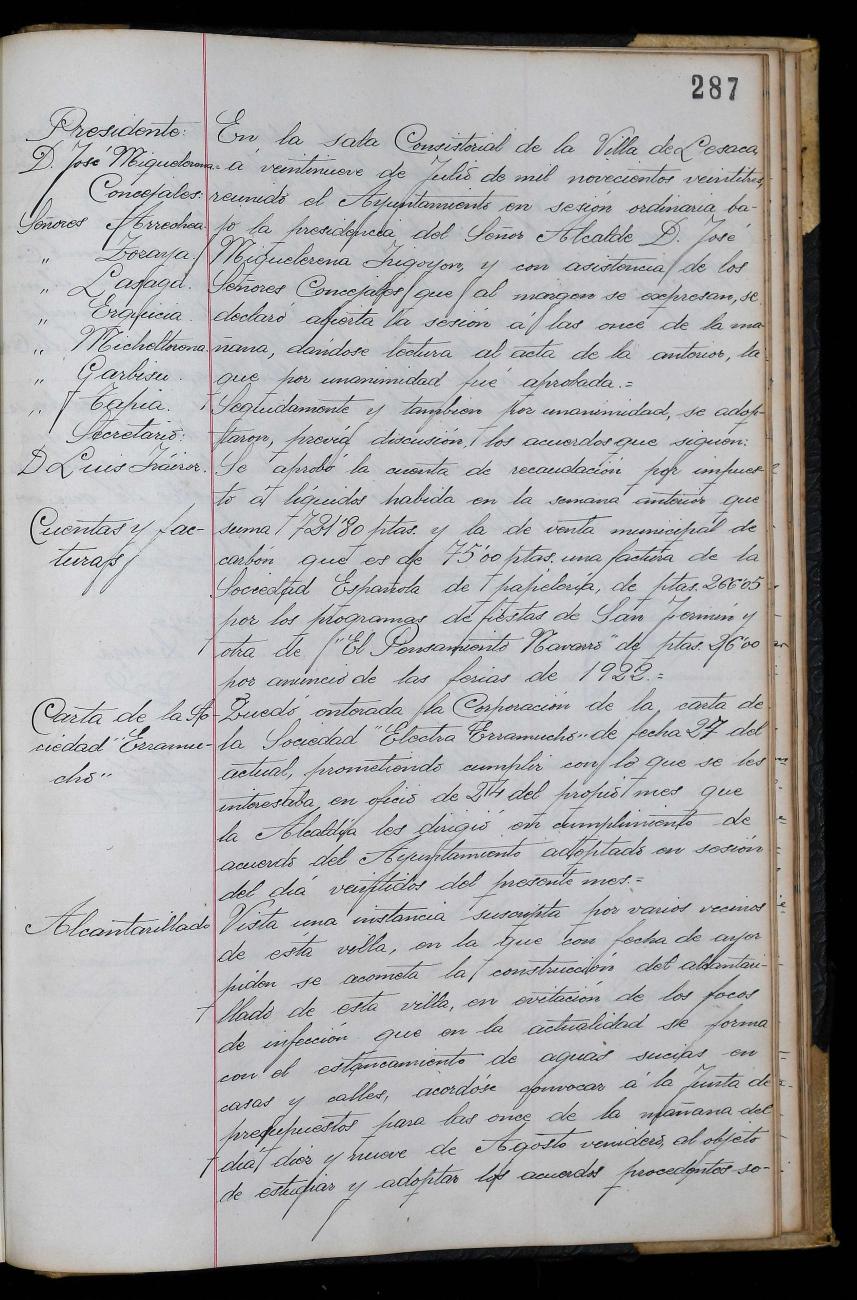 287
Presidente:
D. José Miguelerena.=
Concejales:
Señores Arrechea.
„ Zoraya.
„ Lasaga.
„ Erquicia.
„ Micheltorena.
„ Garbisu.
„ Tapia.
Secretario:
D Luis Iráizoz.
En la sala Consistorial de la Villa de Lesaca
á veintinueve de Julio de mil novecientos veintitres,
reunido el Ayuntamiento en sesión ordinaria ba-
jo la presidencia del Señor Alcalde D. José
Miguelerena Irigoyen, y con asistencia de los
Señores Concejales que al margen se expresan, se
declaró abierta la sesión á las once de la ma-
ñana, dándose lectura al acta de la anterior, la
que por unanimidad fué aprobada.=
Seguidamente y tambien por unanimidad, se adop-
taron, previa discusión, los acuerdos que siguen:
Cuentas y fac-
turas
Se aprobó la cuenta de recaudación por impues-
to á líquidos habida en la semana anterior que
suma 731'80 ptas. y la de venta municipal de
carbón que es de 75'00 ptas. una factura de la
Sociedad Española de papelería, de ptas. 266'05
por los programas de fiestas de San Fermin y
otra de "El Pensamiento Navarro" de ptas. 26'00
por anuncio de las ferias de 1922.=
Carta de la So-
ciedad "Erramu-
cho"
Quedó enterada la Corporación de la carta de
la Sociedad "Electra Erramucho" de fecha 27 del
actual, prometiendo cumplir con lo que se les
interesaba en oficio de 24 del propio mes que
la Alcaldía les dirigió en cumplimiento de
acuerdo del Ayuntamiento adoptado en sesión
del día veintidos del presente mes.=
Alcantarillado
Vista una instancia suscripta por varios vecinos
de esta villa, en la que con fecha de ayer
piden se acometa la construcción del alcantari-
llado de esta villa, en evitación de los focos
de infección que en la actualidad se forma
con el estancamiento de aguas sucias en
casas y calles, acordóse convocar á la Junta de
presupuestos para las once de la mañana del
día diez y nueve de Agosto venidero, al objeto
de estudiar y adoptar los acuerdos procedentes so-